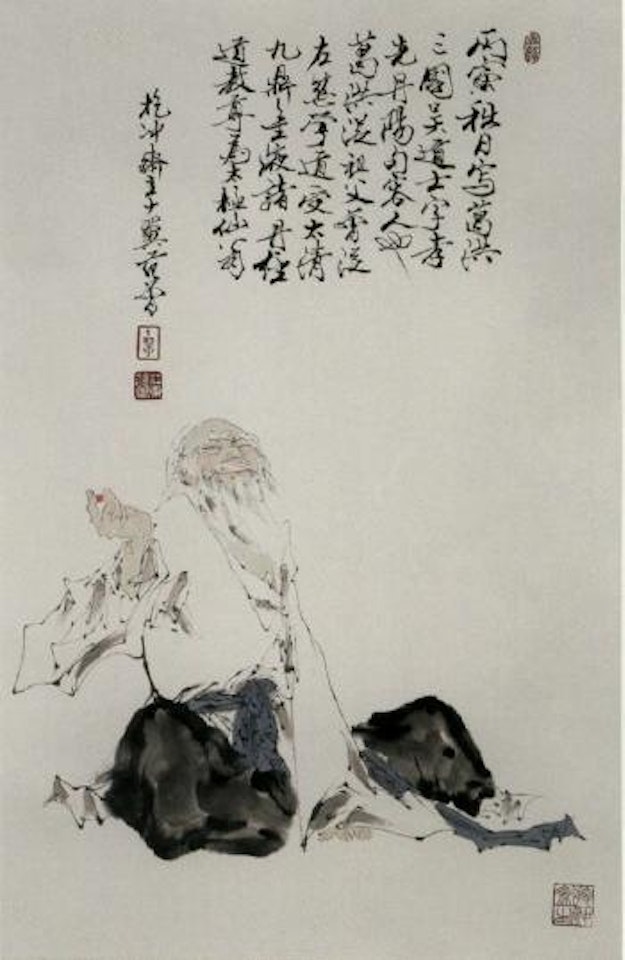 丙寅秋月写葛洪
三國吴道士字孝
先丹陽句容人也
葛洪從祖父曾從
左慈学道受太清
九鼎金液諸丹經
道教尊為太極仙翁
抱冲齋主十翼范曾